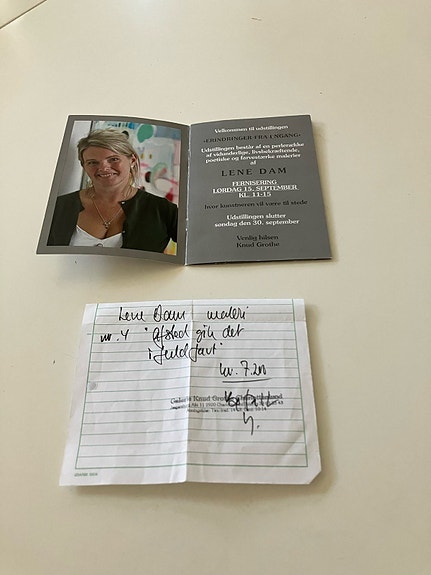 Velkommen til udstillingen
»ERINDRINGER FRA ENGANG«
Udstillingen består af en perlerække
af vidunderlige, livsbekræftende,
poetiske og farvestærke malerier
af
LENE DAM
FERNISERING
LØRDAG 15. SEPTEMBER
KL. 11-15
hvor kunstneren vil være til stede
Udstillingen slutter
søndag den 30. september
Venlig hilsen
Knud Grothe
Lene Dam maleri
nr. 4 "Afsted gik det
i fuld fart"
kr. 7.200
Galerie Knud Grothe